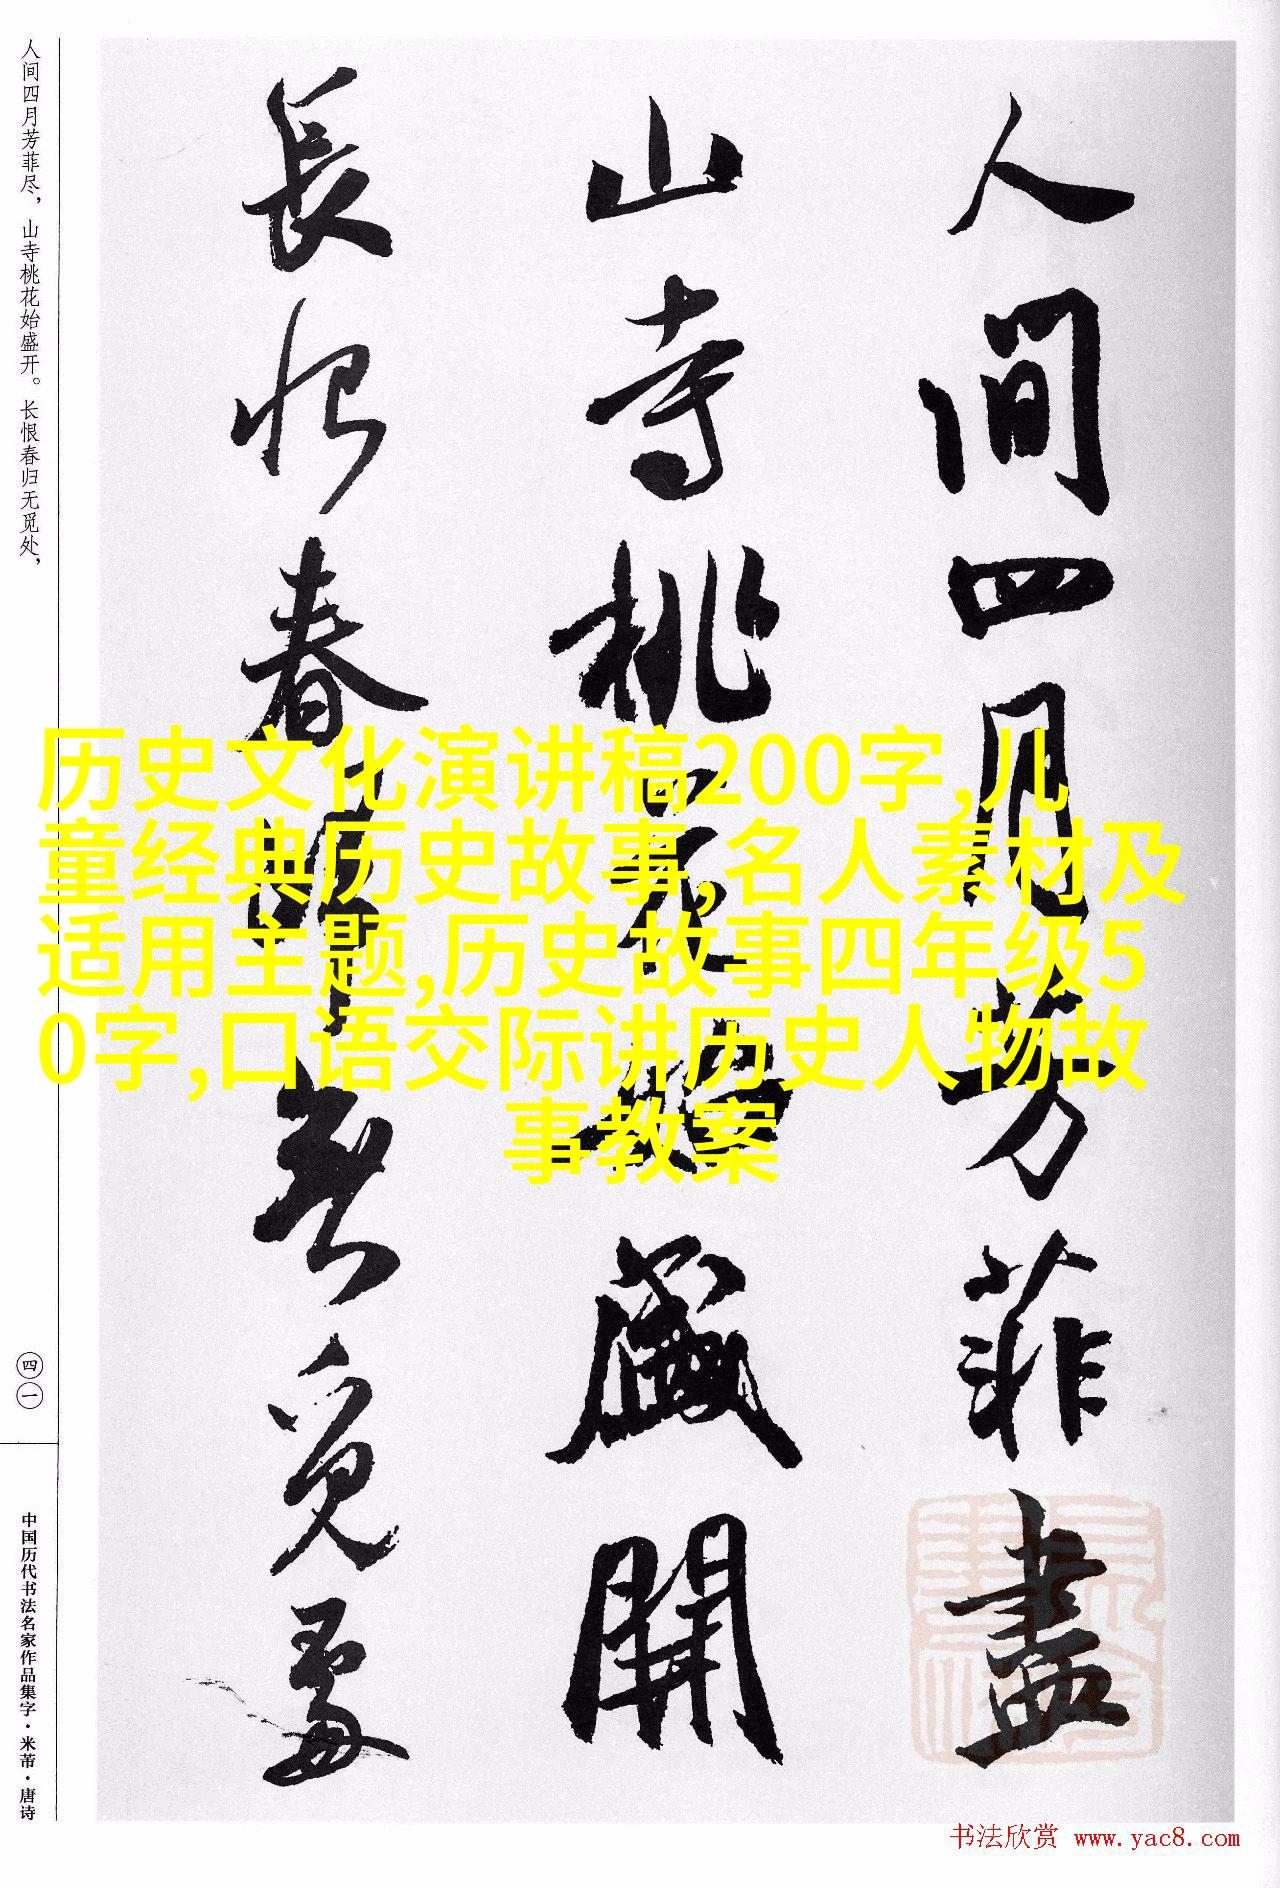 人间四月芳菲尽，山寺桃花始盛开。长恨春归无觅处，
四一
中国历代书法名家作品集字·米芾·唐诗
人间四月芳菲盡
山寺桃花始盛開
長恨春歸無覓處
历史文化演讲稿200字,儿
童经典历史故事,名人素材及
适用主题,历史故事四年级5
0字,口语交际讲历史人物故
事教案
书法欣赏 www.yac8.com